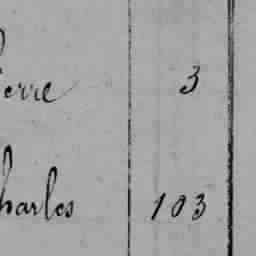 Pierre 3
Charles 103